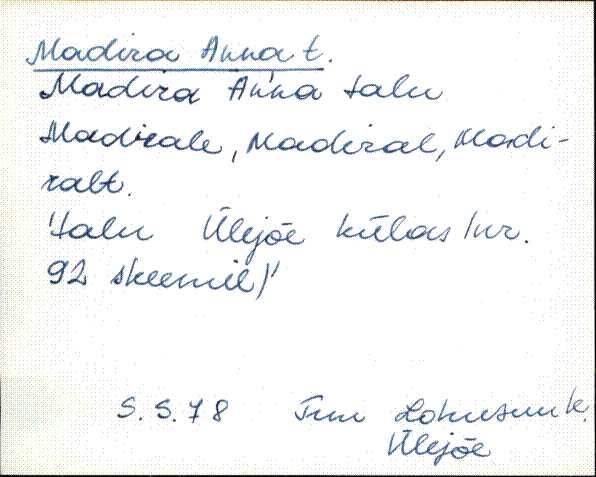 Madira Anna t.
Madira Anna talu
Madirale, Madiral, Madi-
ralt.
'talu Ülejõe külas /nr.
92 skeemil/'
S. S. 78
Ülejõe